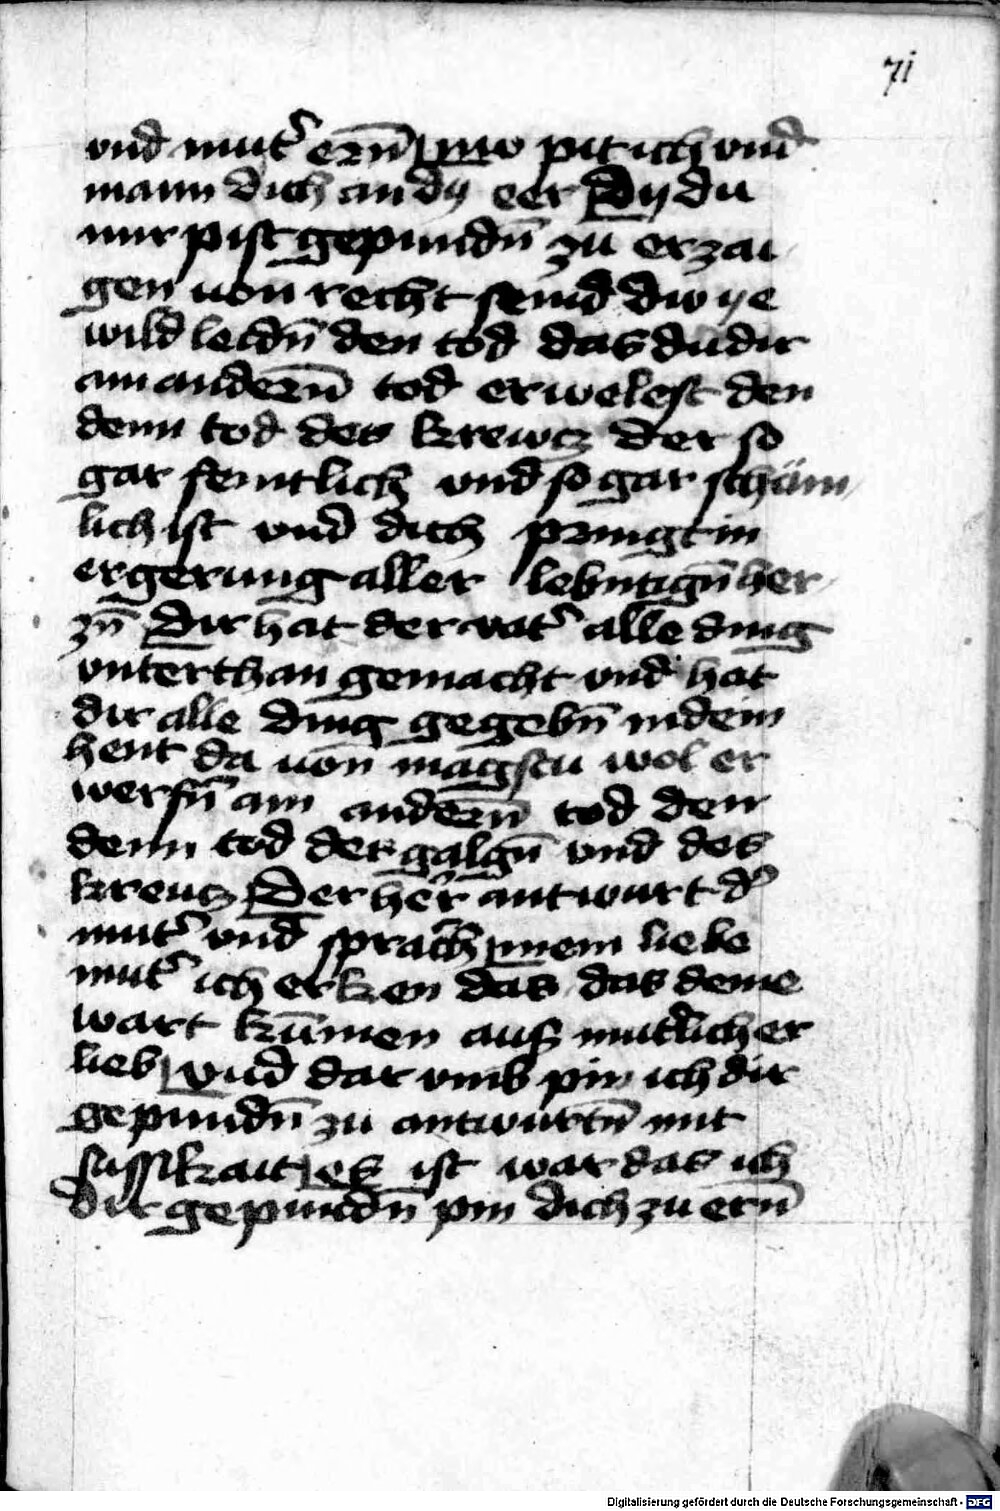 71
vnd mut᷑ ern̄ nw pit ich vnd
mann dich an dy eer Dy du
mir pist gepundn̄ zu erzai
gen von recht seind dw ye
wild leidn̄ den tod das du dir
ain andern̄ tod erwelest den
denn tod des krewcz der so
gar semtlich vnd so gar schäm
lich ist vnd dich pringt in
ergerung aller lebntign̄ her
zn̄ Dir hat der vat᷑ alle ding
vnterthan gemacht vnd hat
dir alle ding gegebn̄ in dein
hent da von magstu wol er
werfn̄ ain andern̄ tod den
denn tod des galgn̄ vnd des
kreucz Der her̄ antwurt d᷑
mut᷑ vnd sprach mein liebe
mut᷑ ich erken das das deine
wart kūmen aus mutlicher
lieb vnd dar vmb pin ich dir
gepundn̄ zu antwurtn̄ mit
sussikait es ist war das ich
dir gepundn̄ pin dich zu ern̄
Digitalisierung gefördert durch die Deutsche Forschungsgemeinschaft - DFG